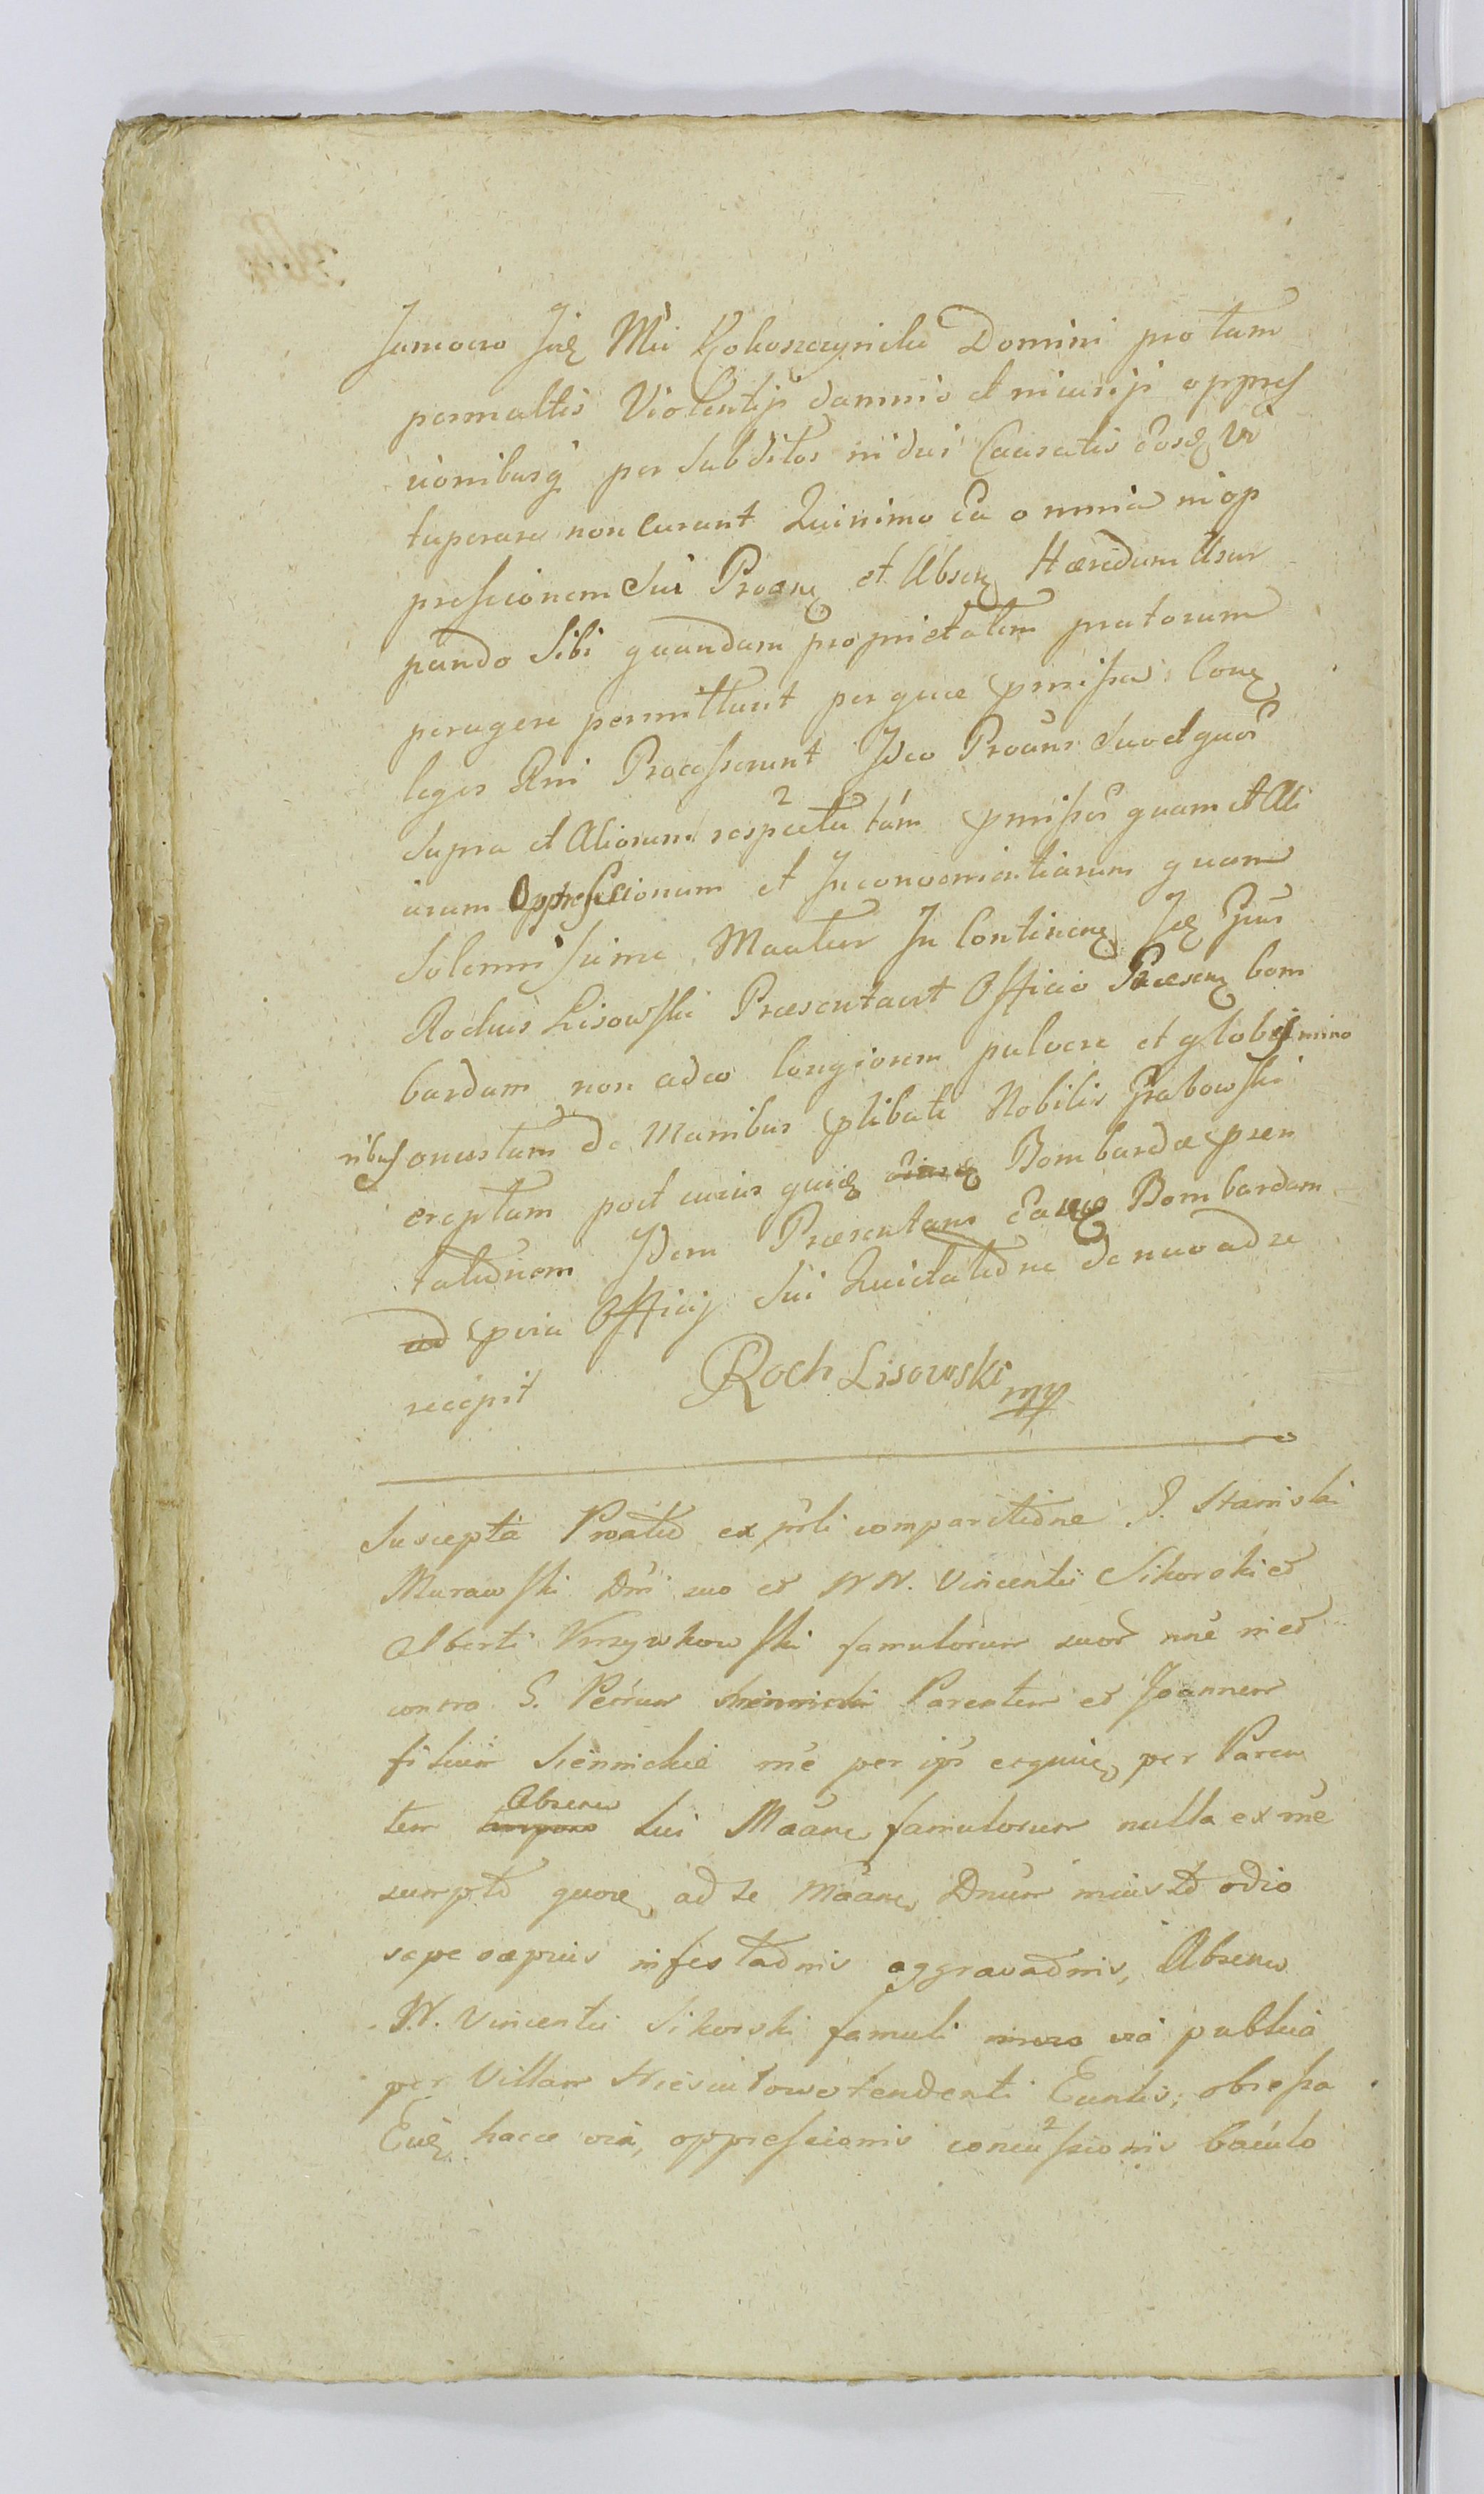 Jumovero Jdq Mci Kokoszczynski Domini pro tam
permultis Violentijs damnis et iniurijs oppres
sionibusq per subditos indui Causatis eosq Vi
tuperare non Curant Quinimo Ea omnia in op
pressionem Sui Proanq et Absenq Haeredum Usur
pando Sibi quandam proprietatem pratorum
peragere permittunt per quae pmissa Conq
leges Rni Processerunt Ideo Proans Suo et quor
supra et Aliorum respectu tam pmissor quam et Ali
arum Oppressionum et Inconvenientiarum quam
Solennissime Maatur In Continenq Idq Gnus
Rochus Lisowski Praesentavit Officio Praesenq bom
bardam non adeo longiorem pulvere et globis mino
ribus onustam de Manibus plibati Nobilis Grabowski
ereptam post cuius quidq Bombardae praen
tationem Idem Praesentans Eanq Bombardam
ad pvia Officij Sui Quietatione denuo ad se
recepit Roch Lisowski mp
Suscepta Proatio ex prli comparitione G. Stanislai
Murawski Dni suo et NN. Vincentii Sikorski et
Alberti Krzywkowski famulorum suor nne in et
contro G. Petrum Parentem et Joannem
filium Siennickie me per ips erquiq per Paren
tem Absenw Sui Maanq famulorum nulla ex me
sumpta quoq ad se Maanq Dnum iniusto odio
sepe saepius infestaonis aggravaonis, Absenw
N. Vincentii Sikorski famuli via publica
per Villam Niesiulowo tendenti Euntis, obsessa
Euq hacce via, oppressionis concussionis baculo